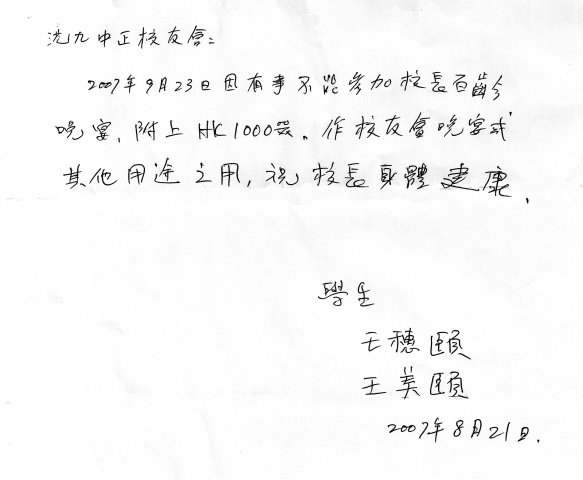 冼九中正校友會：
2007年9月23日因有事不能參加校長百齡
晚宴，附上HK1000器。作校友會晚宴或
其他用途之用，祝校長身體健康．
學生
王穗頤
王美頤
2007年8月21日．